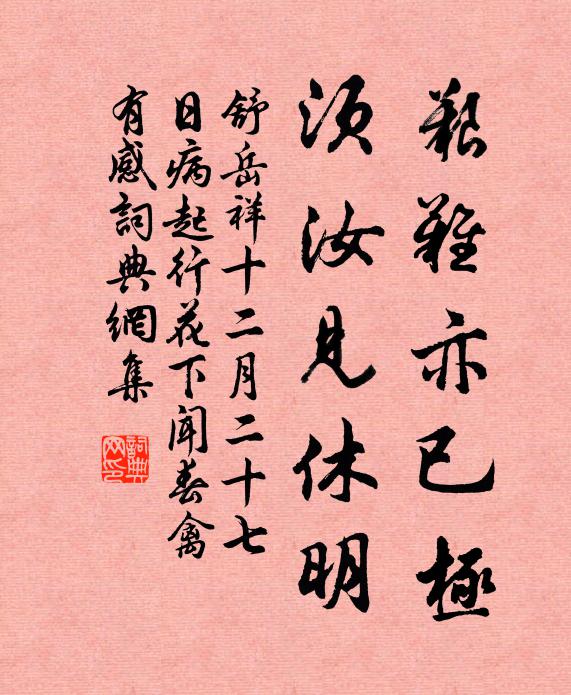 艱難亦已極
須汝見休明
舒岳祥十二月二十七
日病起行花下聞春禽
有感詞典網集
詞典網印